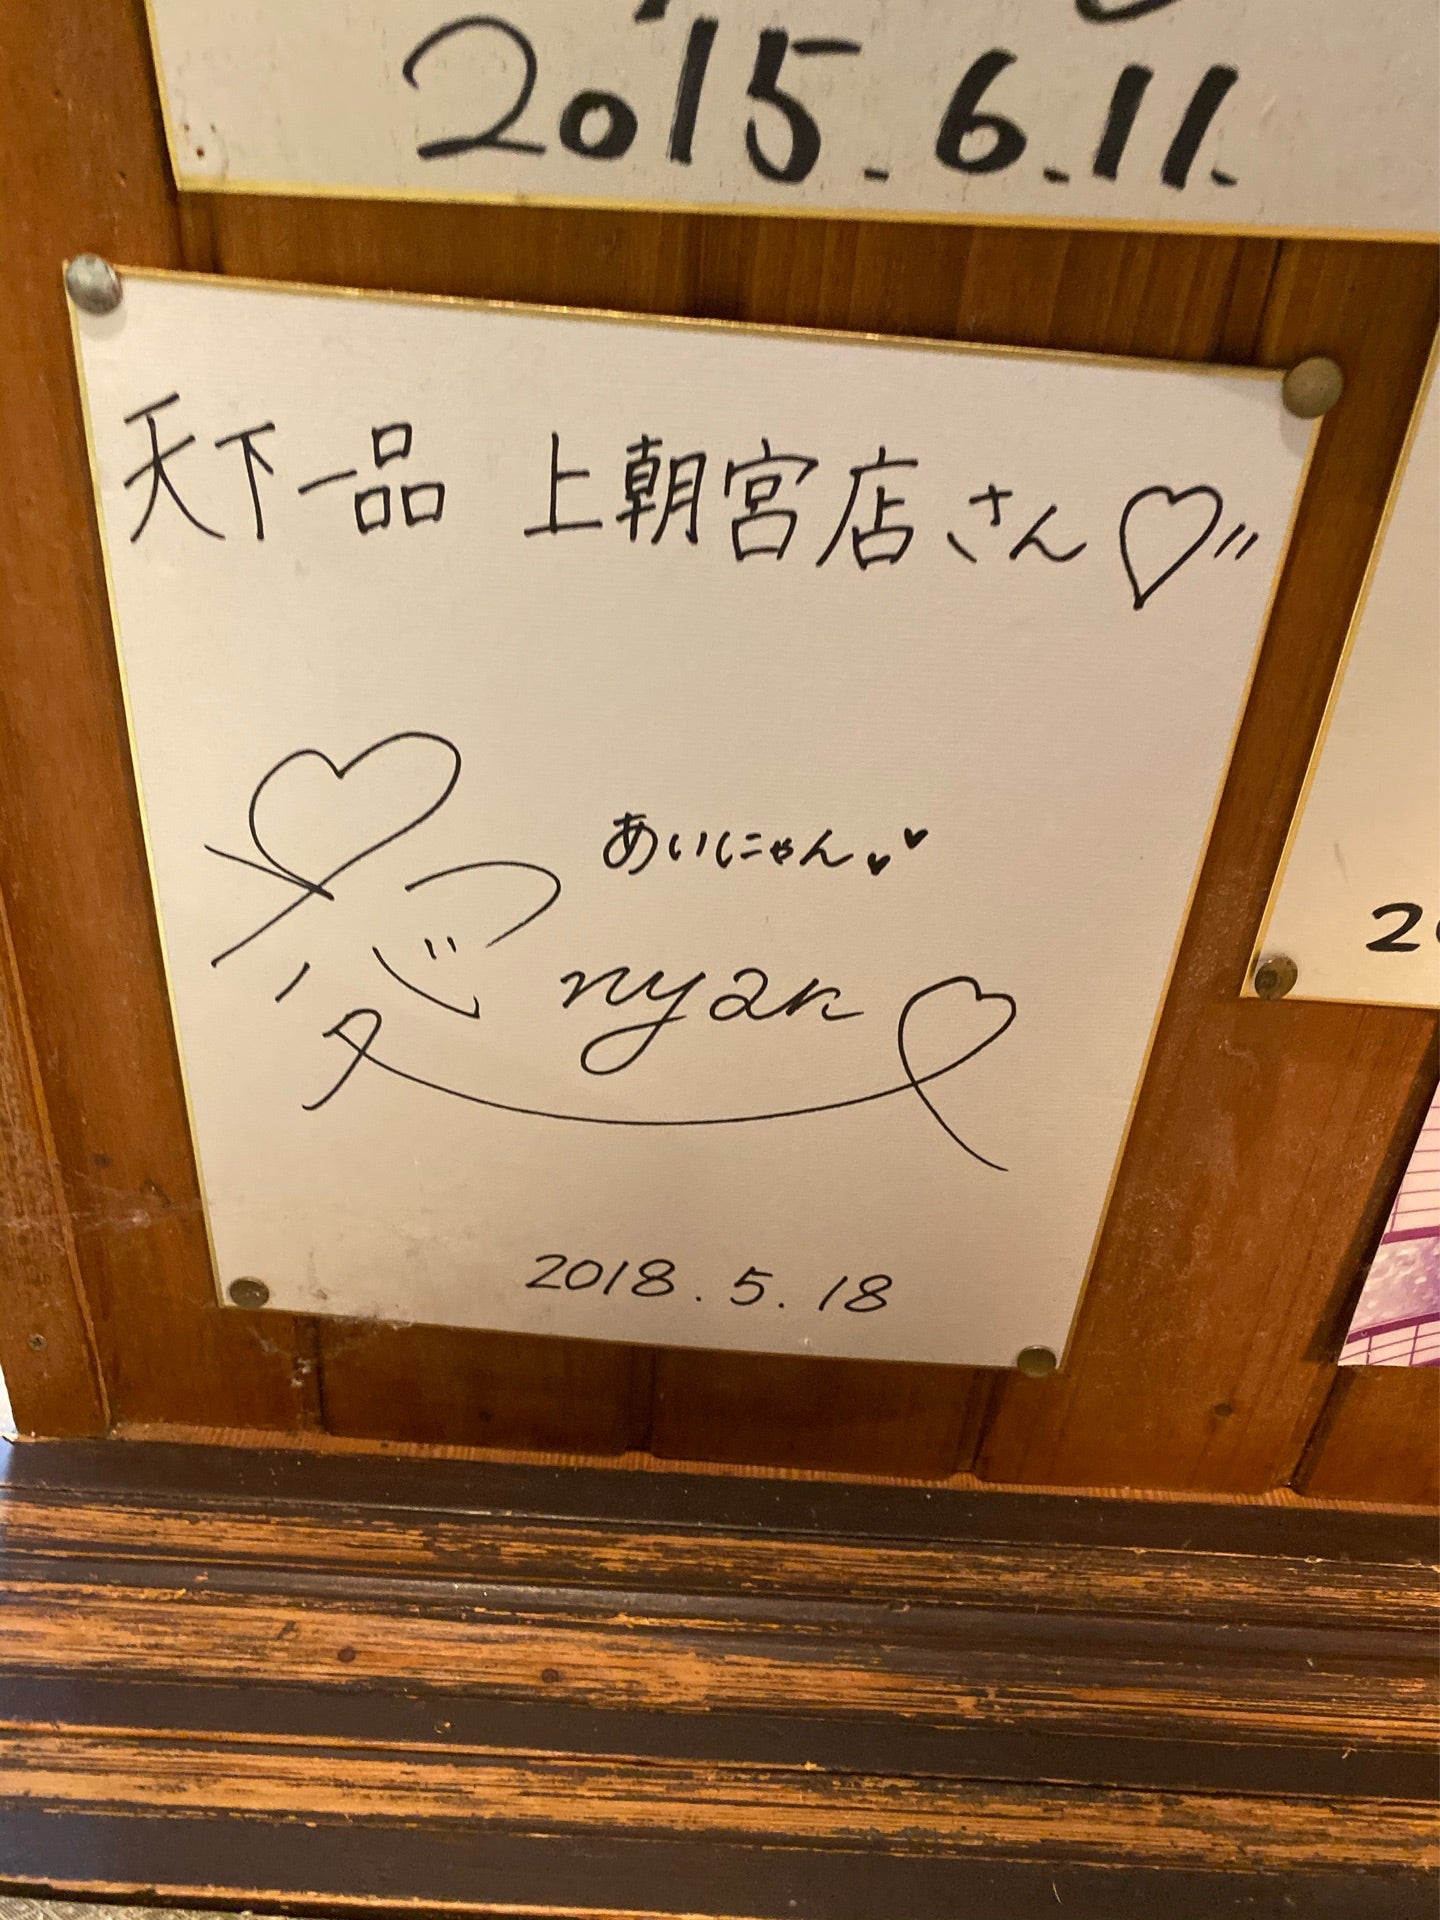 2015.6.11.
天下一品 上朝宮店さん♡〃
あいにゃん
愛nyan
2018.5.18